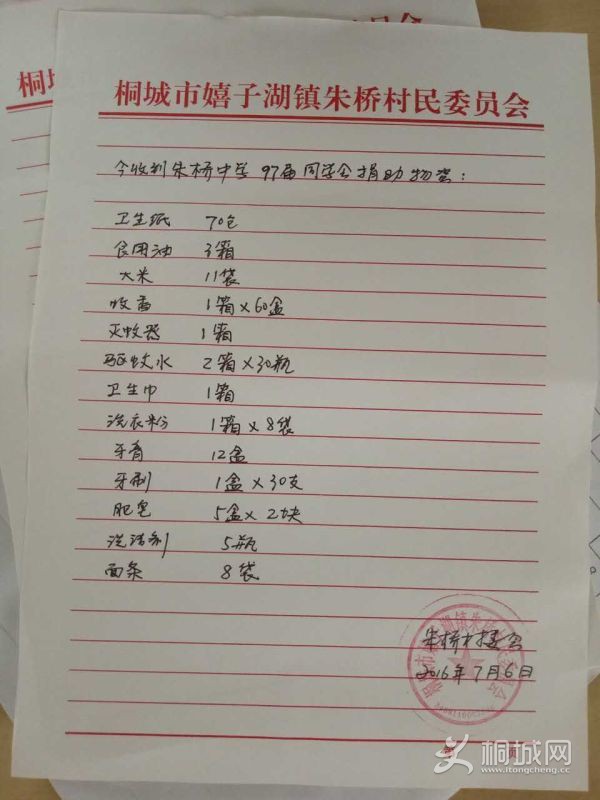 桐城市嬉子湖镇朱桥村民委员会
今收到朱桥中学97届同学会捐助物资：
卫生纸 70包
食用油 3箱
大米 11袋
蚊香 1箱×60盒
灭蚊器 1箱
驱蚊水 2箱×30瓶
卫生巾 1箱
洗衣粉 1箱×8袋
牙膏 12盒
牙刷 1盒×30支
肥皂 5盒×2块
洗洁剂 5瓶
面条 8袋
朱桥村委会
2016年7月6日
第 页
桐城网
www.itongcheng.cc